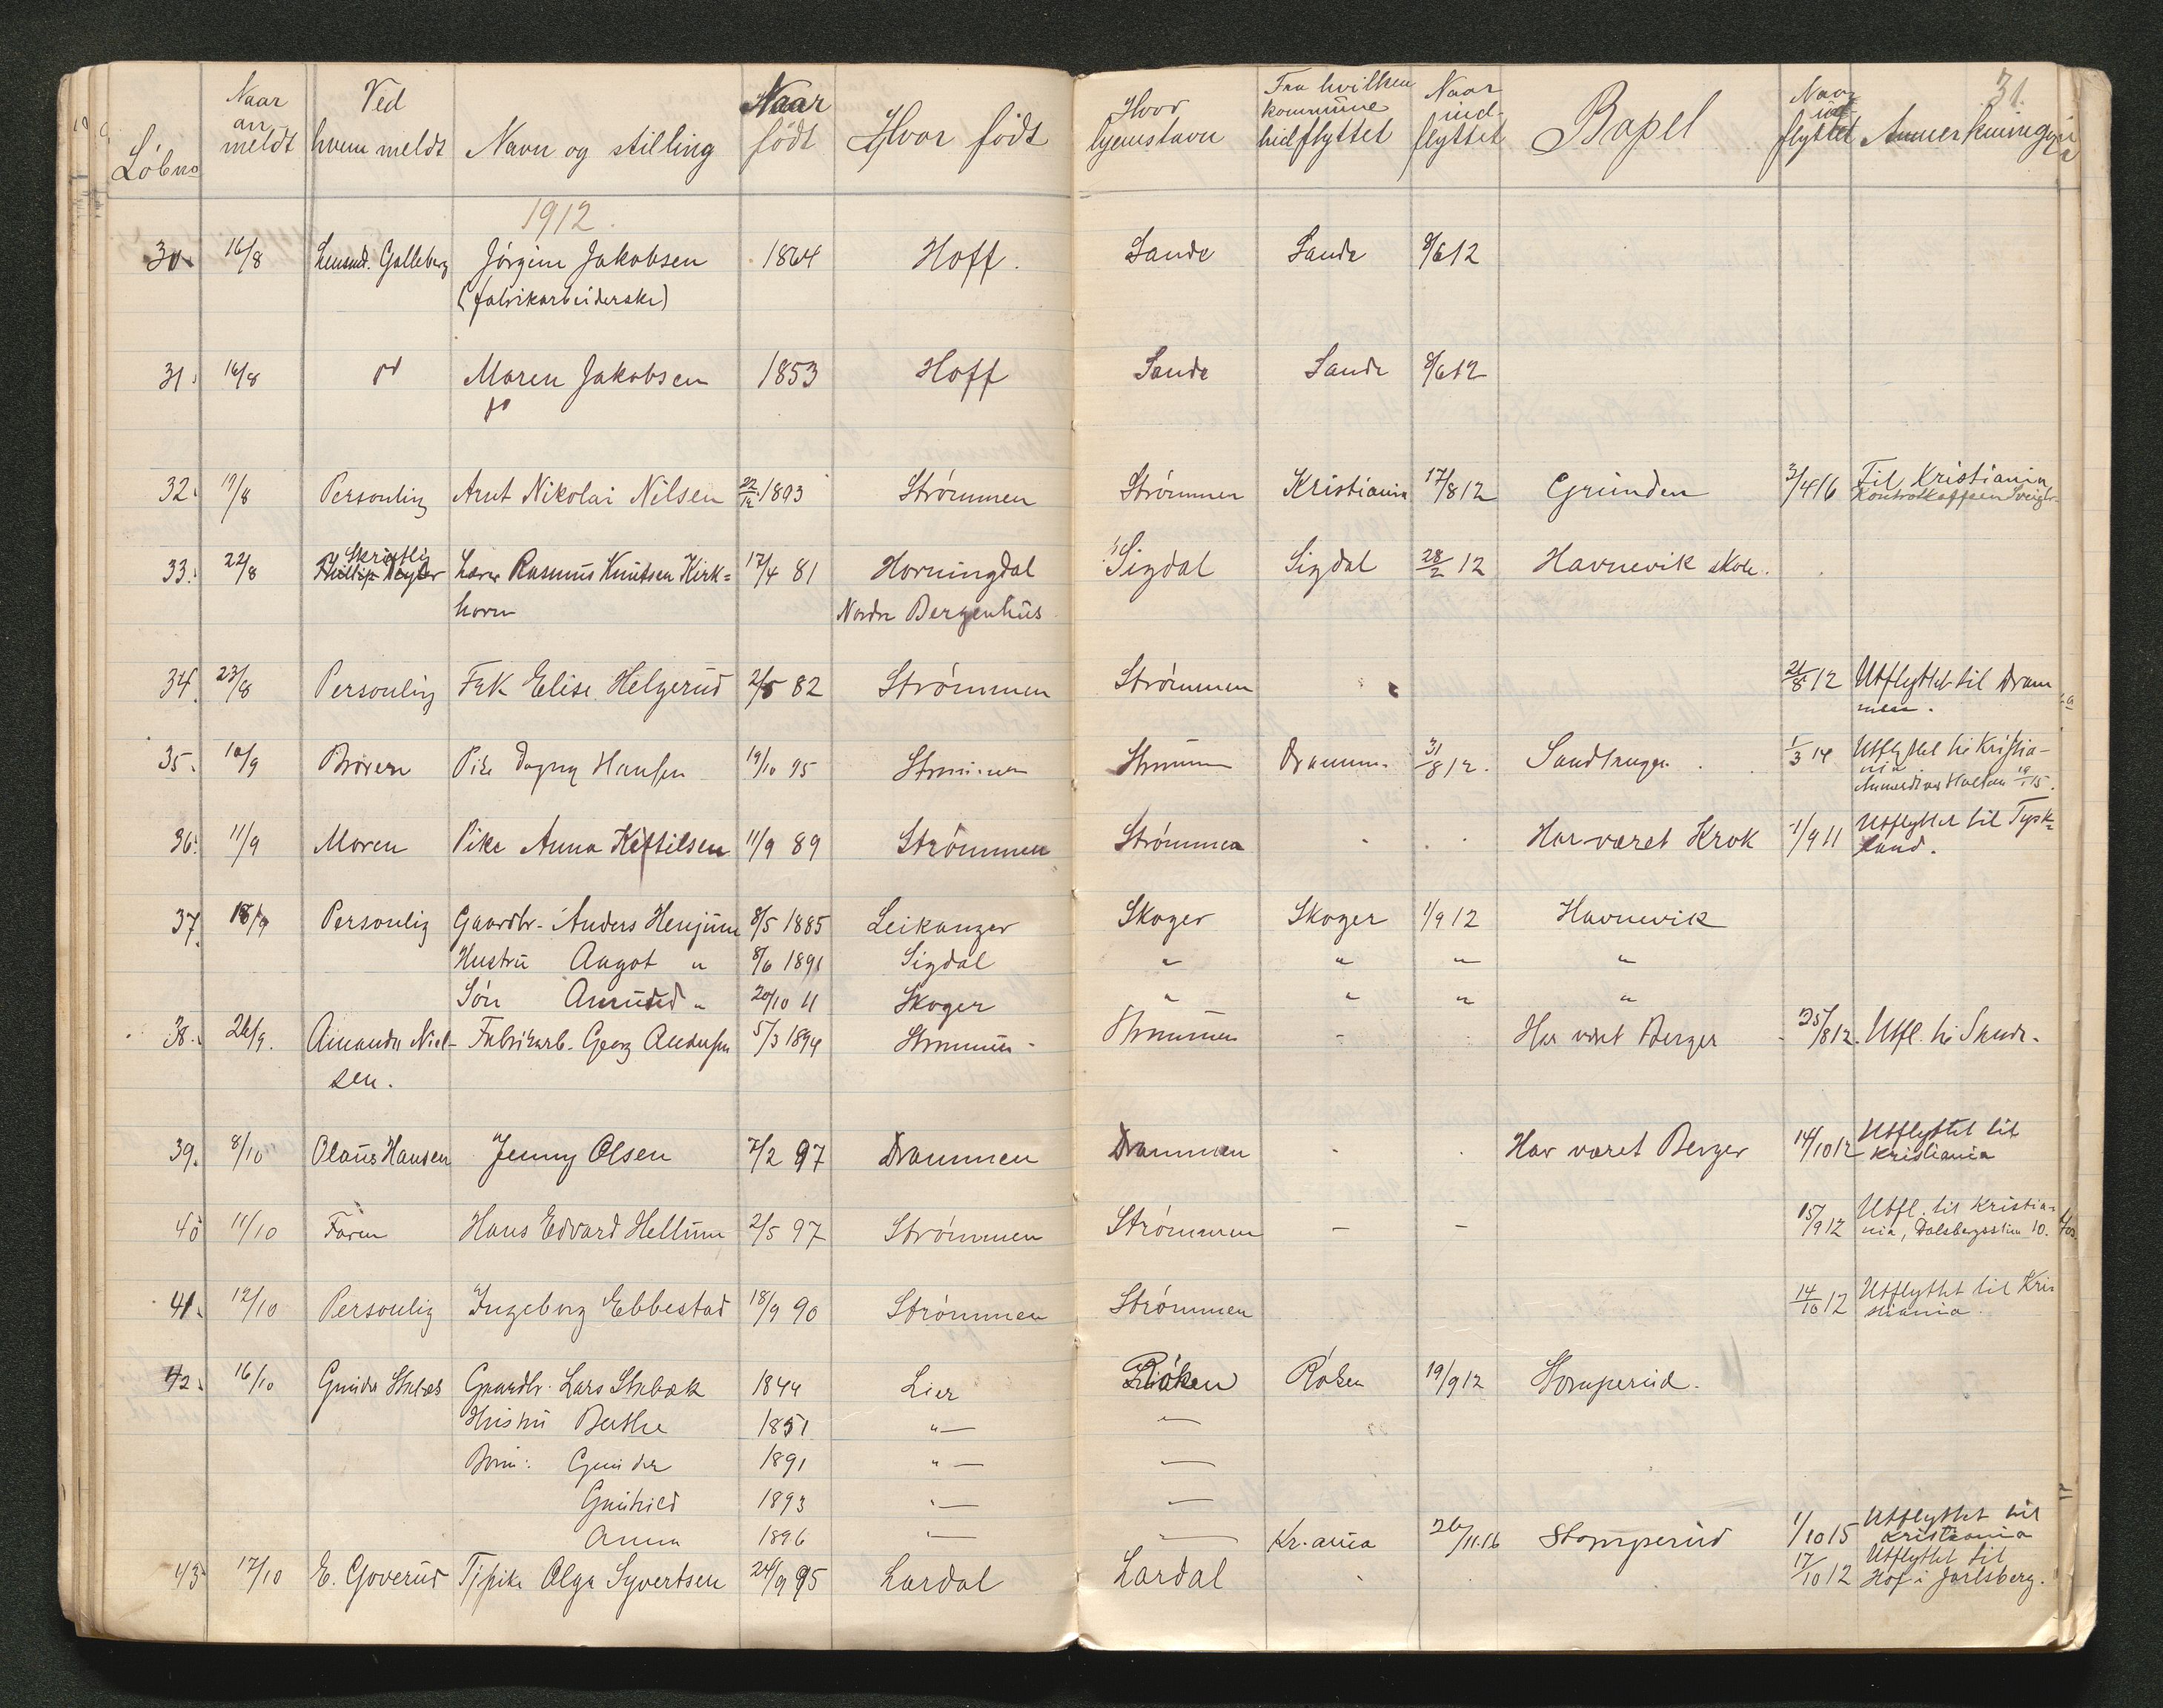 31.
Løbno | Naar anmeldt | Ved hvem meldt | Navn og stilling | Naar født | Hvor født | Hvor hjemstavn | Fra hvilken kommune hidflyttet | Naar indflyttet | Bopel | Naar udflyttet | Anmerkninger
1912.
30. | 16/8 | Lensmd. Galleberg | Jørgine Jakobsen | 1864 | Hoff. | Sande | Sande | 8/6 12
(fabrikarbeiderske)
31. | 16/8 | do | Maren Jakobsen | 1853 | Hoff | Sande | Sande | 8/6 12
do
32. | 19/8 | Personlig | Arnt Nikolai Nilsen | 22/12 1893 | Strømmen | Strømmen | Kristiania | 17/8 12 | Grunden | 3/4 16 | Til Kristiania
33. | 22/8 | Skriftlig | Lærer Rasmus Knutsen Kirk= | 17/4 81 | Horningdal | Sigdal | Sigdal | 28/2 12 | Havnevik skole.
horn | Nordre Bergenhus
34. | 23/8 | Personlig | Frk Elise Helgerud | 2/5 82 | Strømmen | Strømmen | 21/8 12 | Utflyttet til Dram
men.
35. | 10/9 | Broren | Pike Dagny Hansen | 19/10 95 | Strømmen | Strømmen | Drammen | 31/8 12. | 1/3 14 | Utflyttet til Kristia-
nia
36. | 11/9 | Moren | Pike Anna Kittilsen | 11/9 89 | Strømmen | Strømmen | Har været Krok | 1/9 11 | Utflyttet til Tysk=
land.
37. | 18/9 | Personlig | Gaardbr. Anders Henjum | 8/5 1885 | Leikanger | Skoger | Skoger | 1/9 12 | Havnevik
Hustru Aagot " | 8/6 1891 | Sigdal | " | " | " | "
Søn Amund " | 20/10 11 | Skoger | " | " | " | "
38. | 24/9. | Amanda Niel- | Fabrikarb. Georg Andersen | 5/3 1894 | Strømmen | Strømmen | Har været Berger | 25/8 12. | Utfl. til Sande.
sen.
39. | 8/10 | Olaus Hansen | Jenny Olsen | 7/2 97 | Drammen | Drammen | Har været Berger | 14/10 12 | Utflyttet til
Kristiania
40 | 11/10 | Faren | Hans Edvard Hellum | 2/5 97 | Strømmen | Strømmen | - | - | 15/9 12 | Utfl. til Kristia-
nia, Dalsbergsstien 10.
41. | 12/10 | Personlig | Ingeborg Ebbestad | 18/9 90 | Strømmen | Strømmen | 14/10 12 | Utflyttet til Kris
tiania.
42. | 16/10 | Gunda Stubæk | Gaardbr. Lars Stubæk | 1844 | Lier | Røken | Røken | 19/9 12 | Stomperud.
Hustru Berthe | 1851 | "— | —
Børn: Gunda | 1891 | "— | —
Gunhild | 1893 | "— | —
Anna | 1896 | "— | — | Kr.ania | 26/11.16 | Stomperud | 1/10 15 | Utflyttet til
Kristiania
43 | 17/10 | E. Goverud | Tj.pike Olga Syvertsen | 24/9 95 | Lardal | Lardal | 17/10 12 | Utflyttet til
Hof i Jarlsberg.